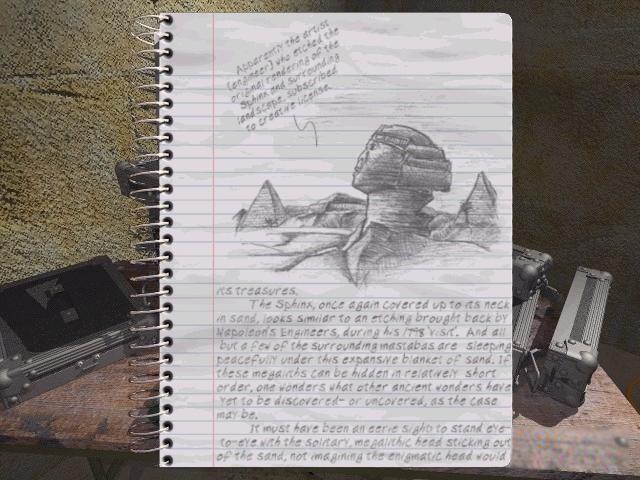 Apparently the artist
(engineer) who etched the
original rendering of the
Sphinx and surrounding
landscape, subscribed
to creative license.
its treasures.
The Sphinx, once again covered up to its neck
in sand, looks similar to an etching brought back by
Napoleon's Engineers, during his 1798 visit. And all
but a few of the surrounding mastabas are sleeping
peacefully under this expansive blanket of sand. If
these megaliths can be hidden in relatively short
order, one wonders what other ancient wonders have
yet to be discovered- or uncovered, as the case
may be.
It must have been an eerie sight to stand eye-
to-eye with the solitary, megalithic head sticking out
of the sand, not imagining the enigmatic head would